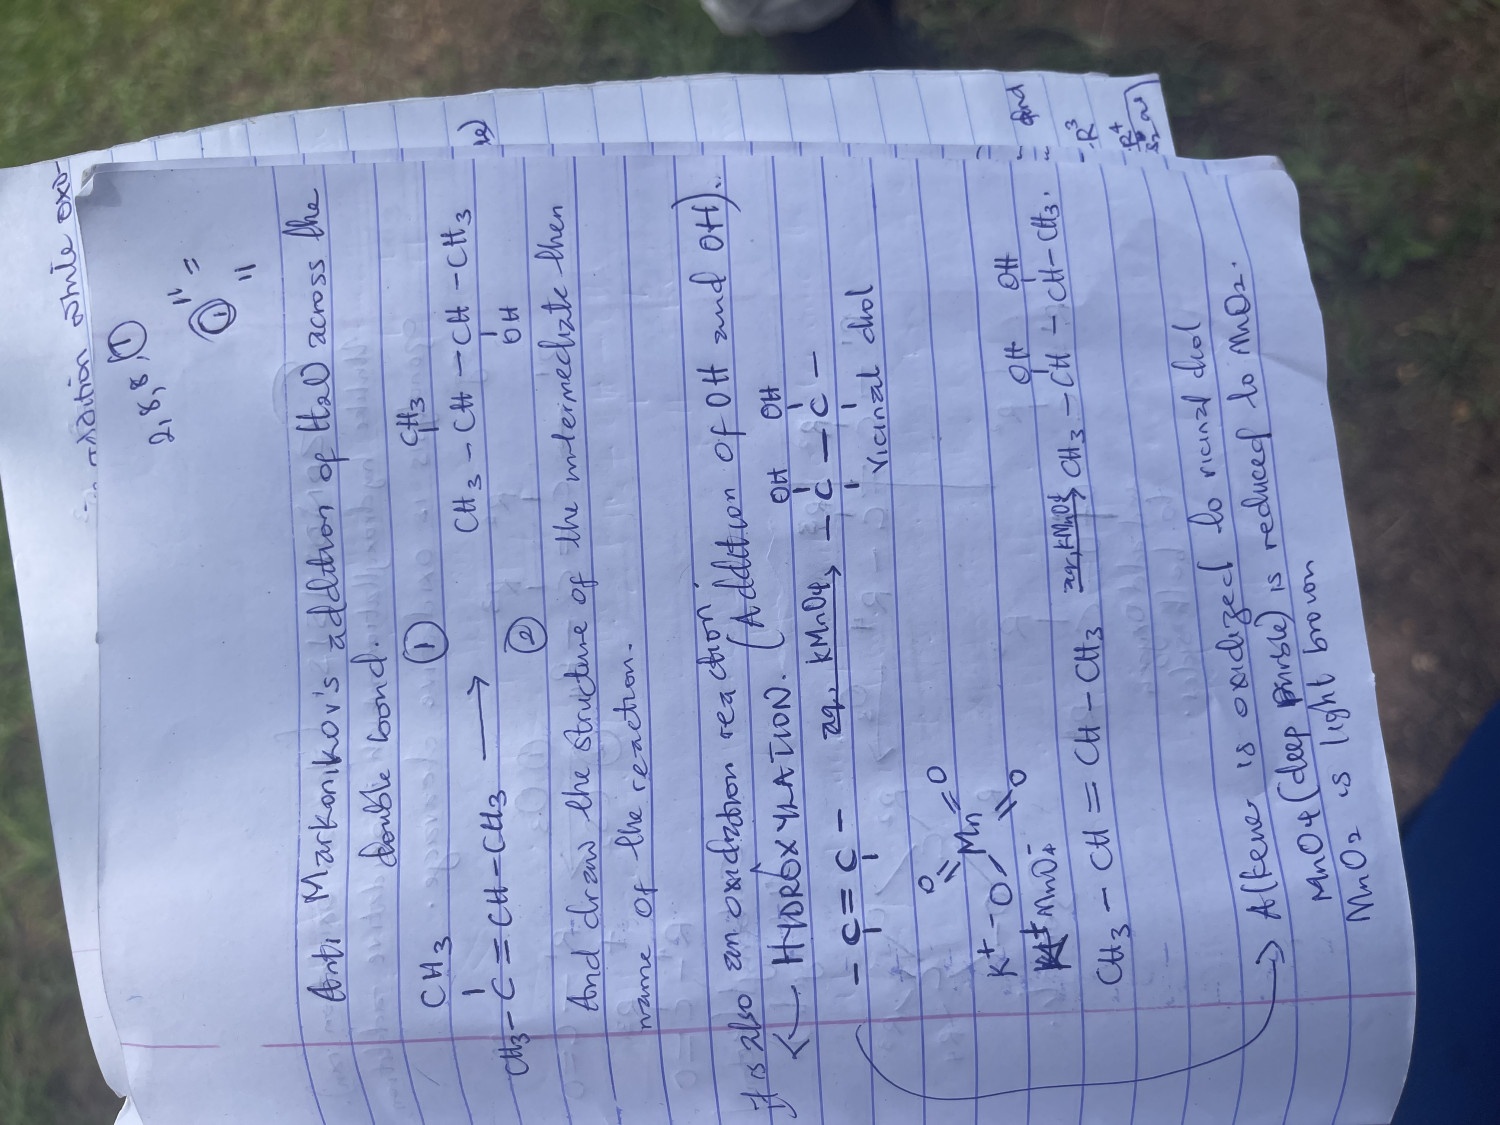 oxidation while oxo-
2, 8, 8, 1
1 " =
"
Anti Markonikov's addition of H2O across the
double bond.
CH3 1 CH3
CH3 - C = CH - CH3 → CH3 - CH - CH - CH3
2 OH
And draw the structure of the intermediate then
name of the reaction.
it is also an oxidation reaction
← HYDROXYLATION. (Addition of OH and OH).
OH OH
- C = C - aq, KMnO4 → - C - C -
vicinal diol
O
K+ - O Mn = O
O
K+ MnO4-
OH OH
CH3 - CH = CH - CH3 aq, KMnO4 → CH3 - CH - CH - CH3.
→ Alkene is oxidized to vicinal diol
MnO4 (deep purble) is reduced to MnO2.
MnO2 is light brown
and
- R3
R4